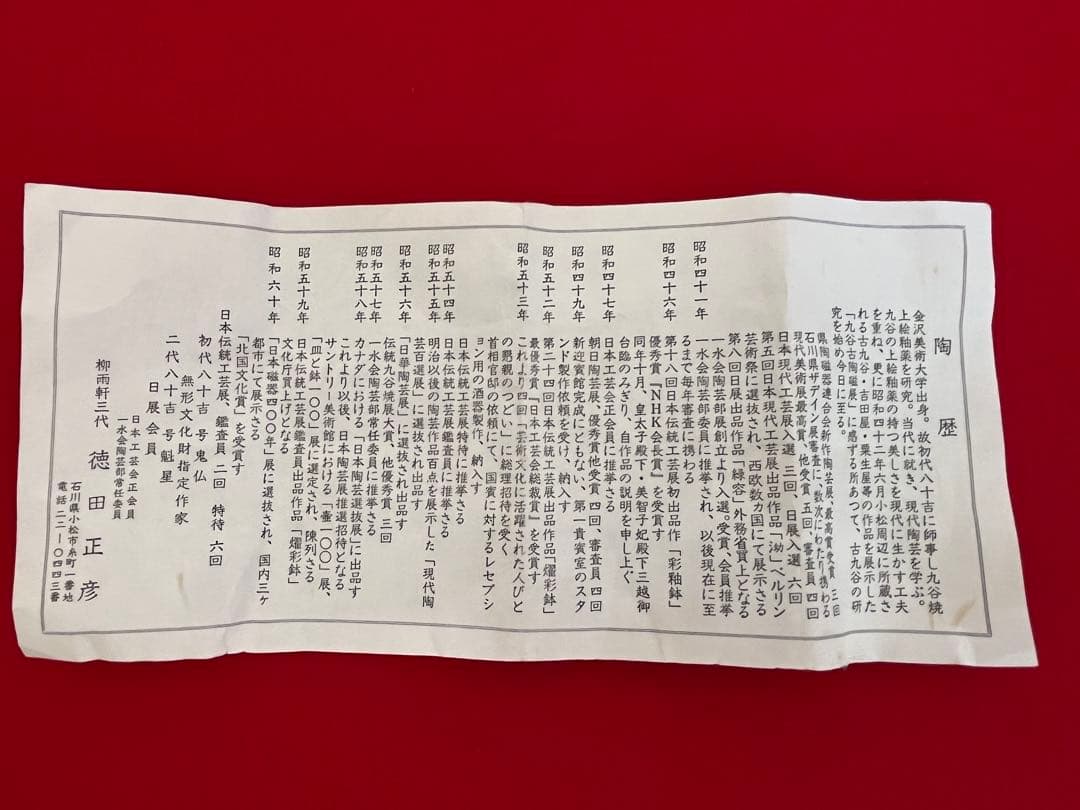 陶歴
金沢美術大学出身。故初代八十吉に師事し九谷焼
上絵釉薬を研究。当代に就き、現代陶芸を学ぶ。
九谷の上絵釉薬の持つ美しさを現代に生かす工夫
を重ね、更に昭和四十二年六月小松周辺に所蔵さ
れる古九谷・吉田屋・粟生屋等の作品を展示した
「九谷古陶磁展」に感ずる所あって、古九谷の研
究を始め今日に至る。
県陶磁器連合会新作陶芸展、最高賞受賞 三回
石川県デザイン展審査に、数次にわたり携わる
現代美術展最高賞、他受賞 五回、審査員 四回
日本現代工芸展入選 三回、日展入選 六回
昭和四十一年 第五回日本現代工芸展出品作品「泑」ベルリン
芸術祭に選抜され、西欧数カ国にて展示さる
第八回日展出品作品「緑容」外務省買上となる
昭和四十六年 一水会陶芸部展創立より入選。受賞、会員推挙
一水会陶芸部委員に推挙され、以後現在に至
るまで毎年審査に携わる
第十八回日本伝統工芸展初出品作「彩釉鉢」
優秀賞『NHK会長賞』を受賞す
同年十月、皇太子殿下・美智子妃殿下三越御
台臨のみぎり、自作品の説明を申し上ぐ
昭和四十七年 日本工芸会正会員に推挙さる
朝日陶芸展、優秀賞他受賞 四回、審査員 四回
昭和四十九年 新迎賓館完成にともない、第一貴賓室のスタ
ンド製作依頼を受け、納入す
昭和五十二年 第二十四回日本伝統工芸展出品作品「燿彩鉢」
最優秀賞『日本工芸会総裁賞』を受賞す
昭和五十三年 これより四回「芸術文化に活躍された人びと
の懇親のつどい」に総理招待を受く
首相官邸の依頼にて、国賓に対するレセプシ
ョン用の酒器製作、納入す
昭和五十四年 日本伝統工芸展特待に推挙さる
昭和五十五年 日本伝統工芸展鑑査員に推挙さる
明治以後の陶芸作品百点を展示した「現代陶
芸百選展」に選抜され出品す
昭和五十六年 「日華陶芸展」に選抜され出品す
伝統九谷焼展大賞、他優秀賞 三回
昭和五十七年 一水会陶芸部常任委員に推挙さる
昭和五十八年 カナダにおける「日本陶芸選抜展」に出品す
これより以後、日本陶芸展推選招待となる
サントリー美術館における「壷一〇〇」展、
「皿と鉢一〇〇」展に選定され、陳列さる
昭和五十九年 日本伝統工芸展鑑査員出品作品「燿彩鉢」
文化庁買上げとなる
昭和六十年 「日本磁器四〇〇年」展に選抜され、国内三ヶ
都市にて展示さる
「北国文化賞」を受賞す
日本伝統工芸展、鑑査員 二回 特待 六回
初代八十吉 号鬼仏
無形文化財指定作家
二代八十吉 号魁星
日展会員
日本工芸会正会員
一水会陶芸部常任委員
柳雨軒三代 徳田正彦
石川県小松市糸町一番地
電話二二―〇四四三番